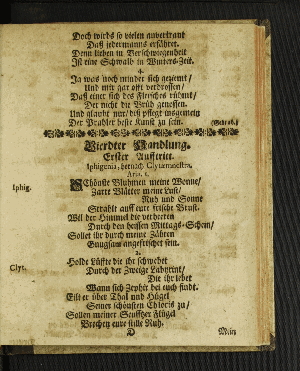 Doch wirds so vielen anvertraut
Daß jedermanns erfähret.
Denn lieben in Verschwiegenheit
Ist eine Schwalb in Winters-Zeit.
4.
Ja was noch minder sich gezemt/
Und mir gar offt verdrossen/
Daß einer sich des Fleisches rühmt/
Der nicht die Brüh genossen.
Und glaubt nur/ diß pflegt insgemein
Der Prahler beste Kunst zu seyn. (Geht ab.)
Vierdter Handlung.
Erster Aufftritt.
Iphigenia, hernach Clytæmnestra.
Aria. 1.
Iphig. Schönste Bluhmen meine Wonne/
Zarte Blätter meine Lust/
Ruh und Sonne
Strahlt auff eure frische Brust.
Wil der Himmel die verbreiten
Durch den heissen Mittags-Schein/
Sollet ihr durch meine Zähren
Gnugsam angefrischet seyn.
2.
Clyt. Holde Lüffte die ihr schwebet
Durch der Zweige Labyrint/
Die ihr lebet
Wann sich Zephir bey euch findt.
Eilt er über Thal und Hügel
Seiner schönsten Chloris zu/
Sollen meiner Seuffzer Flügel
Brechen eure stille Ruh.
D Mein